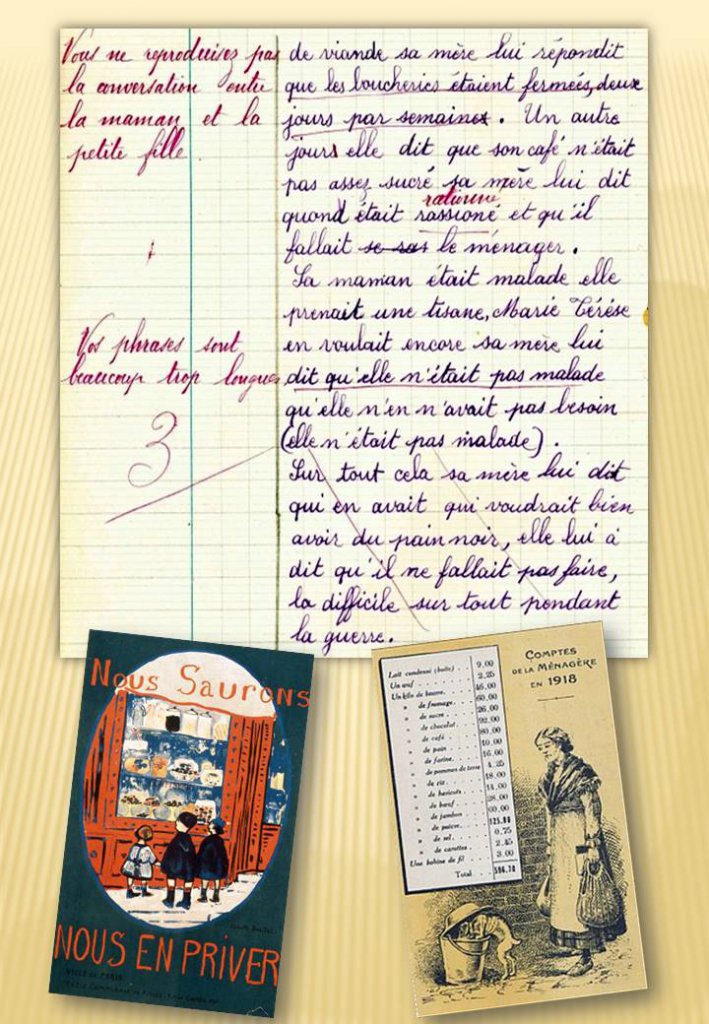 Vous ne reproduisez pas
la conversation entre
la maman et la
petite fille
Vos phrases sont
beaucoup trop longues
3
de viande sa mère lui répondit
que les boucheries étaient fermées, deux
jours par semaines. Un autre
jours elle dit que son café n'était
pas assez sucré sa mère lui dit
rationné
quand était rassioné et qu'il
fallait le ménager.
Sa maman était malade elle
prenait une tisane, Marie Térése
en voulait encore sa mère lui
dit qu'elle n'était pas malade
qu'elle n'en n'avait pas besoin
(elle n'était pas malade).
Sur tout cela sa mère lui dit
qui en avait qui voudrait bien
avoir du pain noir, elle lui a
dit qu'il ne fallait pas faire,
la difficile sur tout pendant
la guerre.
Nous Saurons
NOUS EN PRIVER
VILLE DE PARIS
COMPTES
DE LA MÉNAGÈRE
EN 1918
Lait condensé (boîte) 9,00
Un œuf 2,25
Un kilo de beurre
" de fromage
" de sucre
" de chocolat
" de café
" de pain
" de farine
" de pommes de terre
" de riz
" de haricots
" de bœuf
" de jambon
" de poivre 125,00
" de sel 0,75
" de carottes
Une bobine de fil 3,00
Total